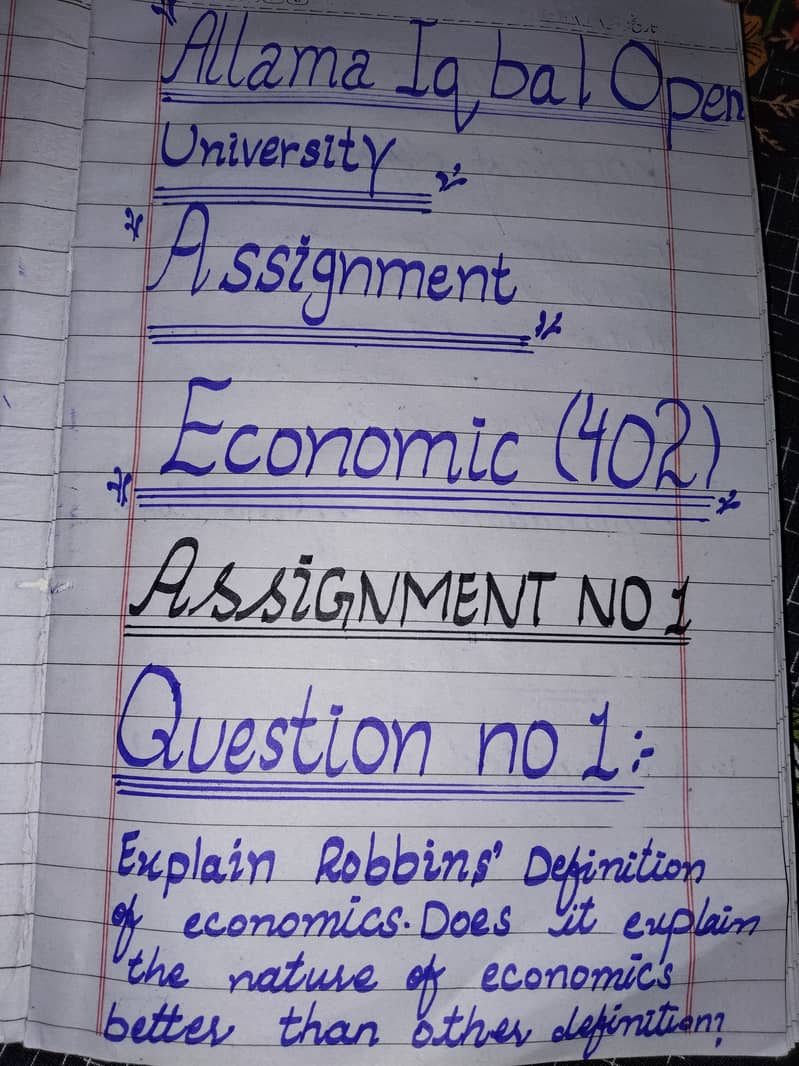 Allama Iqbal Open
University
Assignment
Economic (402)
ASSiGNMENT NO 1
Question no 1:-
Explain Robbins' Definition
of economics. Does it explain
the nature of economics
better than other definition?